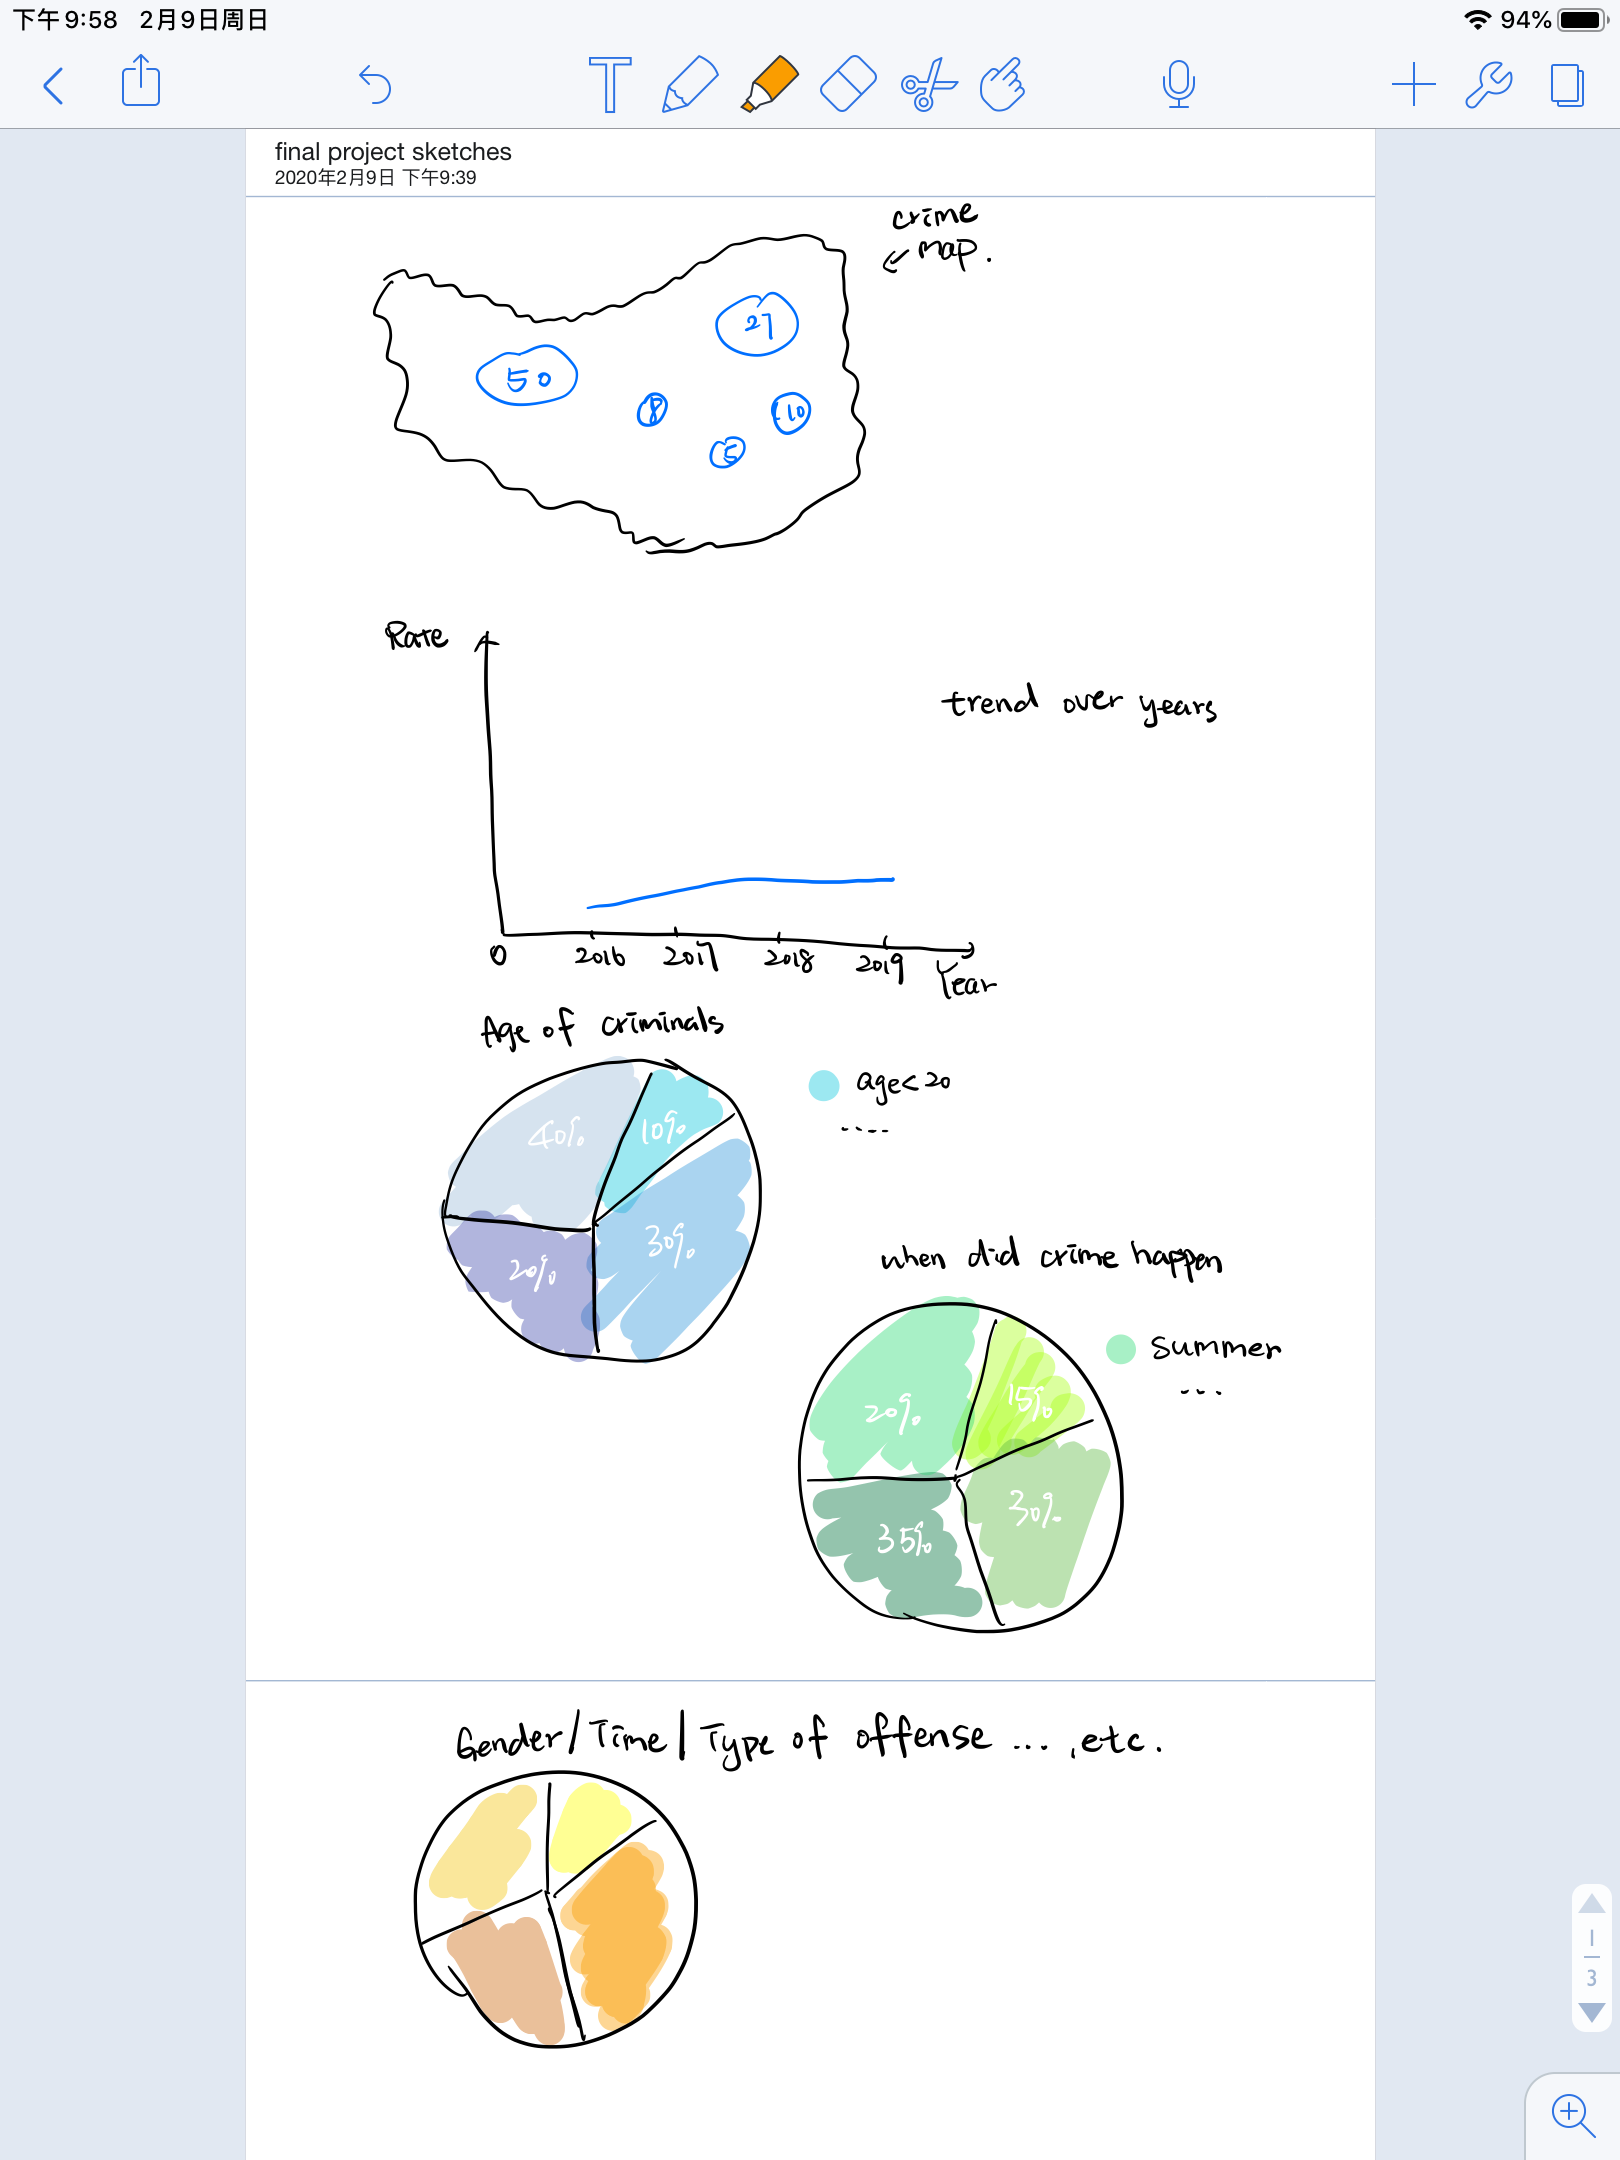 下午9:58 2月9日周日
94%
T
final project sketches
2020年2月9日 下午9:39
crime
map.
27
50
8
10
5
Rate
trend over years
0 2016 2017 2018 2019
Year
Age of criminals
age<20
....
40%
10%
30%
20%
when did crime happen
summer
...
20%
15%
30%
35%
Gender/Time/Type of offense ... ,etc.
1
3